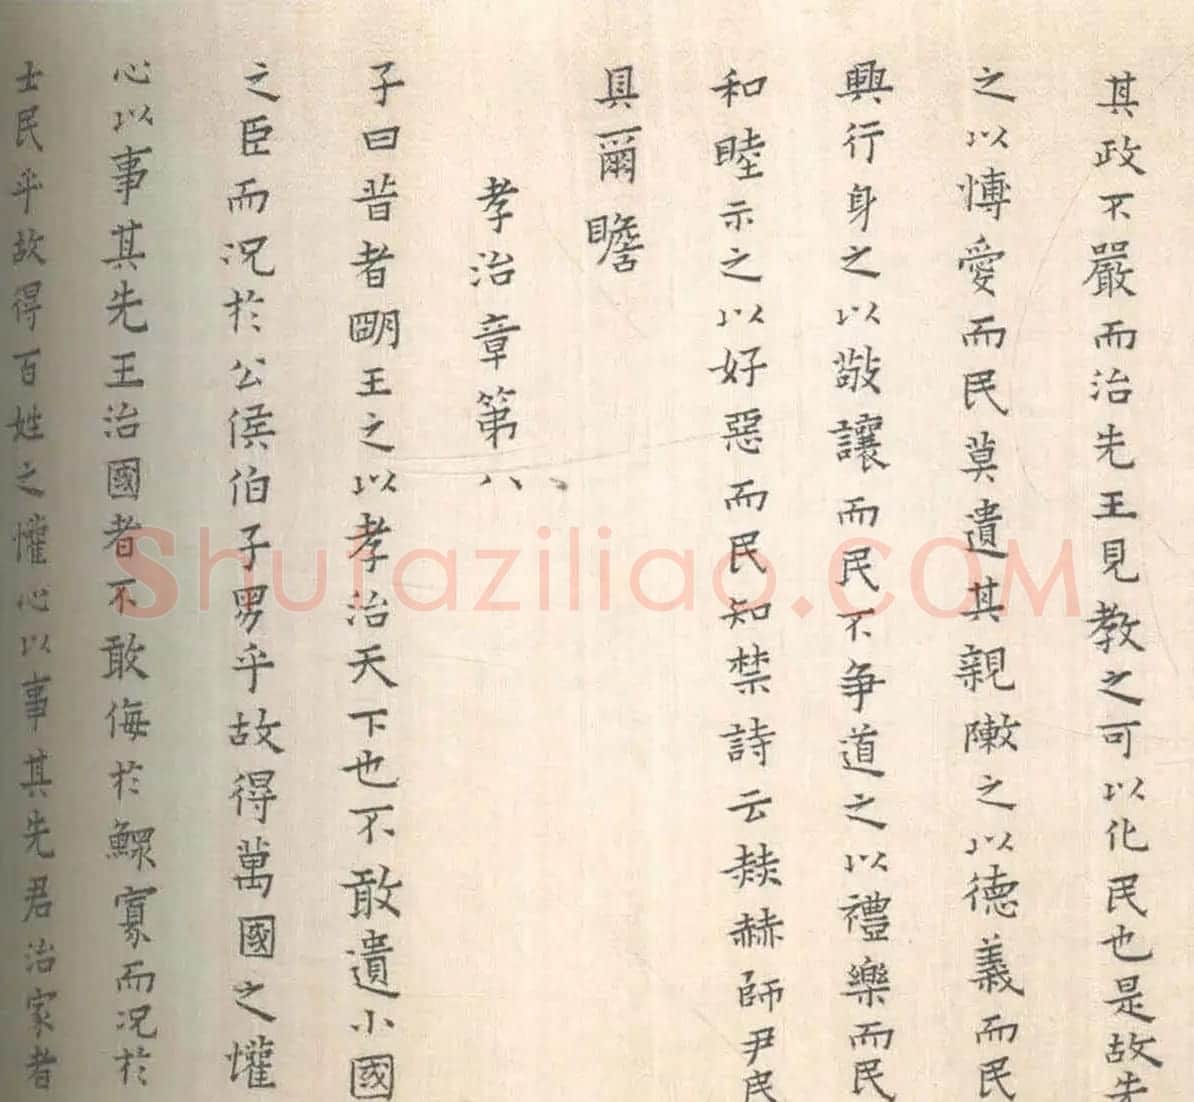 其政不嚴而治先王見教之可以化民也是故先
之以愽愛而民莫遺其親敶之以德義而民
興行身之以敬讓而民不爭道之以禮樂而民
和睦示之以好惡而民知禁詩云赫赫師尹民
具爾瞻
孝治章第八
子曰昔者明王之以孝治天下也不敢遺小國
之臣而況於公侯伯子男乎故得萬國之懽
心以事其先王治國者不敢侮於鰥寡而況於
士民乎故得百姓之懽心以事其先君治家者
Shufaziliao.COM